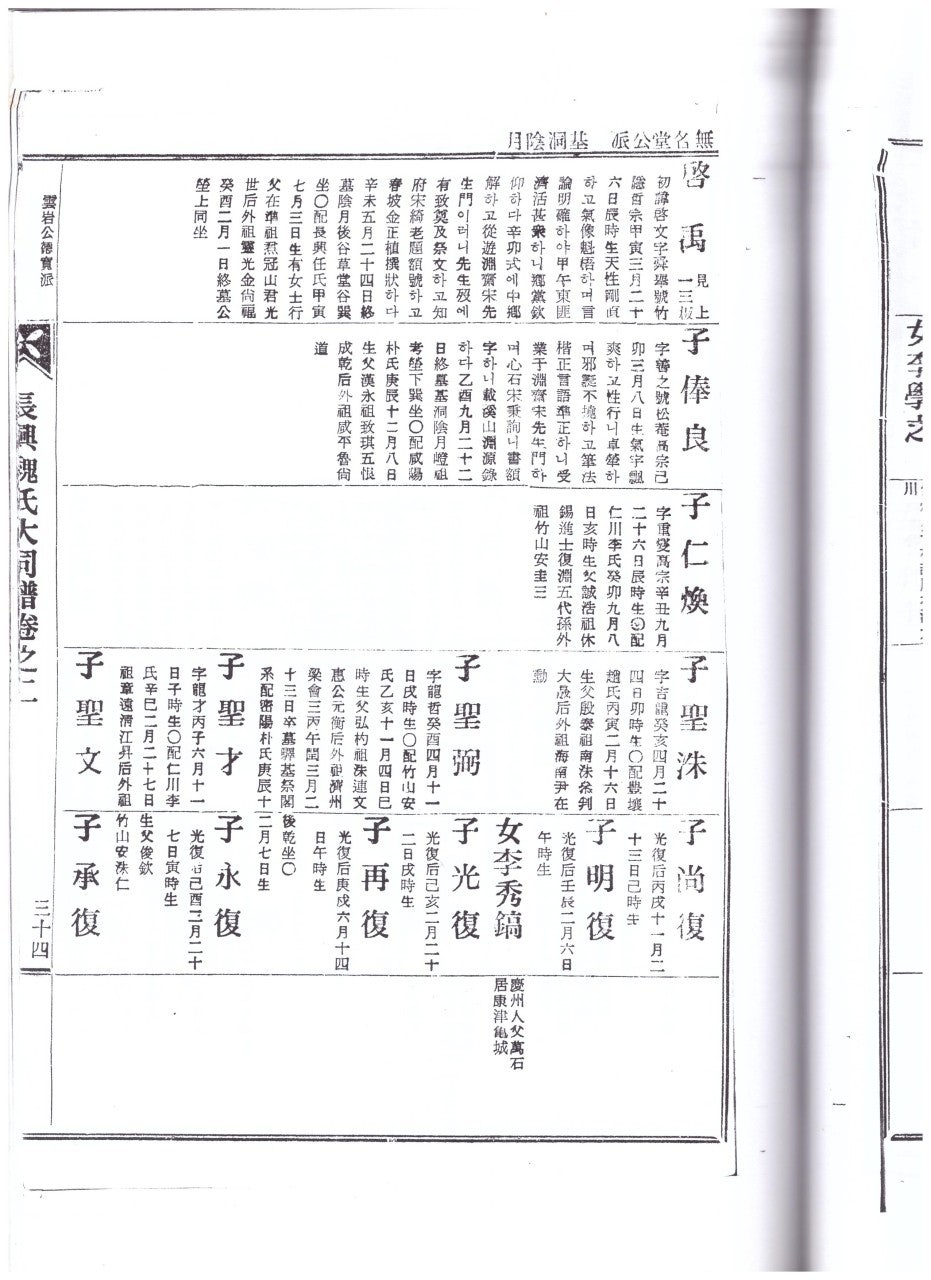 無名堂公派 基洞陰月
啓禹
見上
一三板
初諱啓文字舜擧號竹
隱哲宗甲寅三月二十
六日辰時生天性剛直
하고氣像魁梧하며言
論明確하야甲午東匪
濟活甚衆하니鄕黨欽
仰하다辛卯式에中鄕
解하고從遊淵齋宋先
生門이러니先生歿에
有致奠及祭文하고知
府宋綺老題額號하고
春坡金正植撰狀하다
辛未五月二十四日終
墓陰月後谷草堂谷巽
坐〇配長興任氏甲寅
七月三日生有女士行
父在準祖焄冠山君光
世后外祖靈光金尙福
癸酉二月一日終墓公
塋上同坐
子俸良
字善之號松菴高宗己
卯三月八日生氣宇飄
爽하고性行니卓犖하
며邪誕不撓하고筆法
楷正言語準正하니受
業于淵齋宋先生門하
며心石宋秉珣니書額
字하니載溪山淵源錄
하다乙酉九月二十二
日終墓基洞陰月嶝祖
考塋下巽坐〇配咸陽
朴氏庚辰十二月八日
生父漢永祖致琪五恨
成乾后外祖咸平魯尙
道
子仁煥
字重燮高宗辛丑九月
二十六日辰時生〇配
仁川李氏癸卯九月八
日亥時生父誠浩祖休
錫進士復淵五代孫外
祖竹山安圭三
子聖洙
字吉龍癸亥四月二十
四日卯時生〇配豊壤
趙氏丙寅二月十六日
生父殷泰祖南洙參判
大晟后外祖海南尹在
勳
子聖弼
字龍哲癸酉四月十一
日戌時生〇配竹山安
氏乙亥十一月四日巳
時生父弘杓祖洙連文
惠公元衡后外祖濟州
梁會三丙午閏三月二
十三日卒墓驛基祭閣
後乾坐〇
系配密陽朴氏庚辰十
二月七日生
子聖才
字龍才丙子六月十一
日子時生〇配仁川李
氏辛巳二月二十七日
生父俊欽
祖章遠淸江昇后外祖
竹山安洙仁
子聖文
子尙復
光復后丙戌十一月二
十三日己時生
子明復
光復后壬辰二月六日
午時生
女李秀鎬
慶州人父萬石
居康津龜城
子光復
光復后己亥二月二十
二日戌時生
子再復
光復后庚戌六月十四
日午時生
子永復
光復后己酉二月二十
七日寅時生
子承復
雲岩公德實派
長興魏氏大同譜卷之二
三十四
女李學之
川